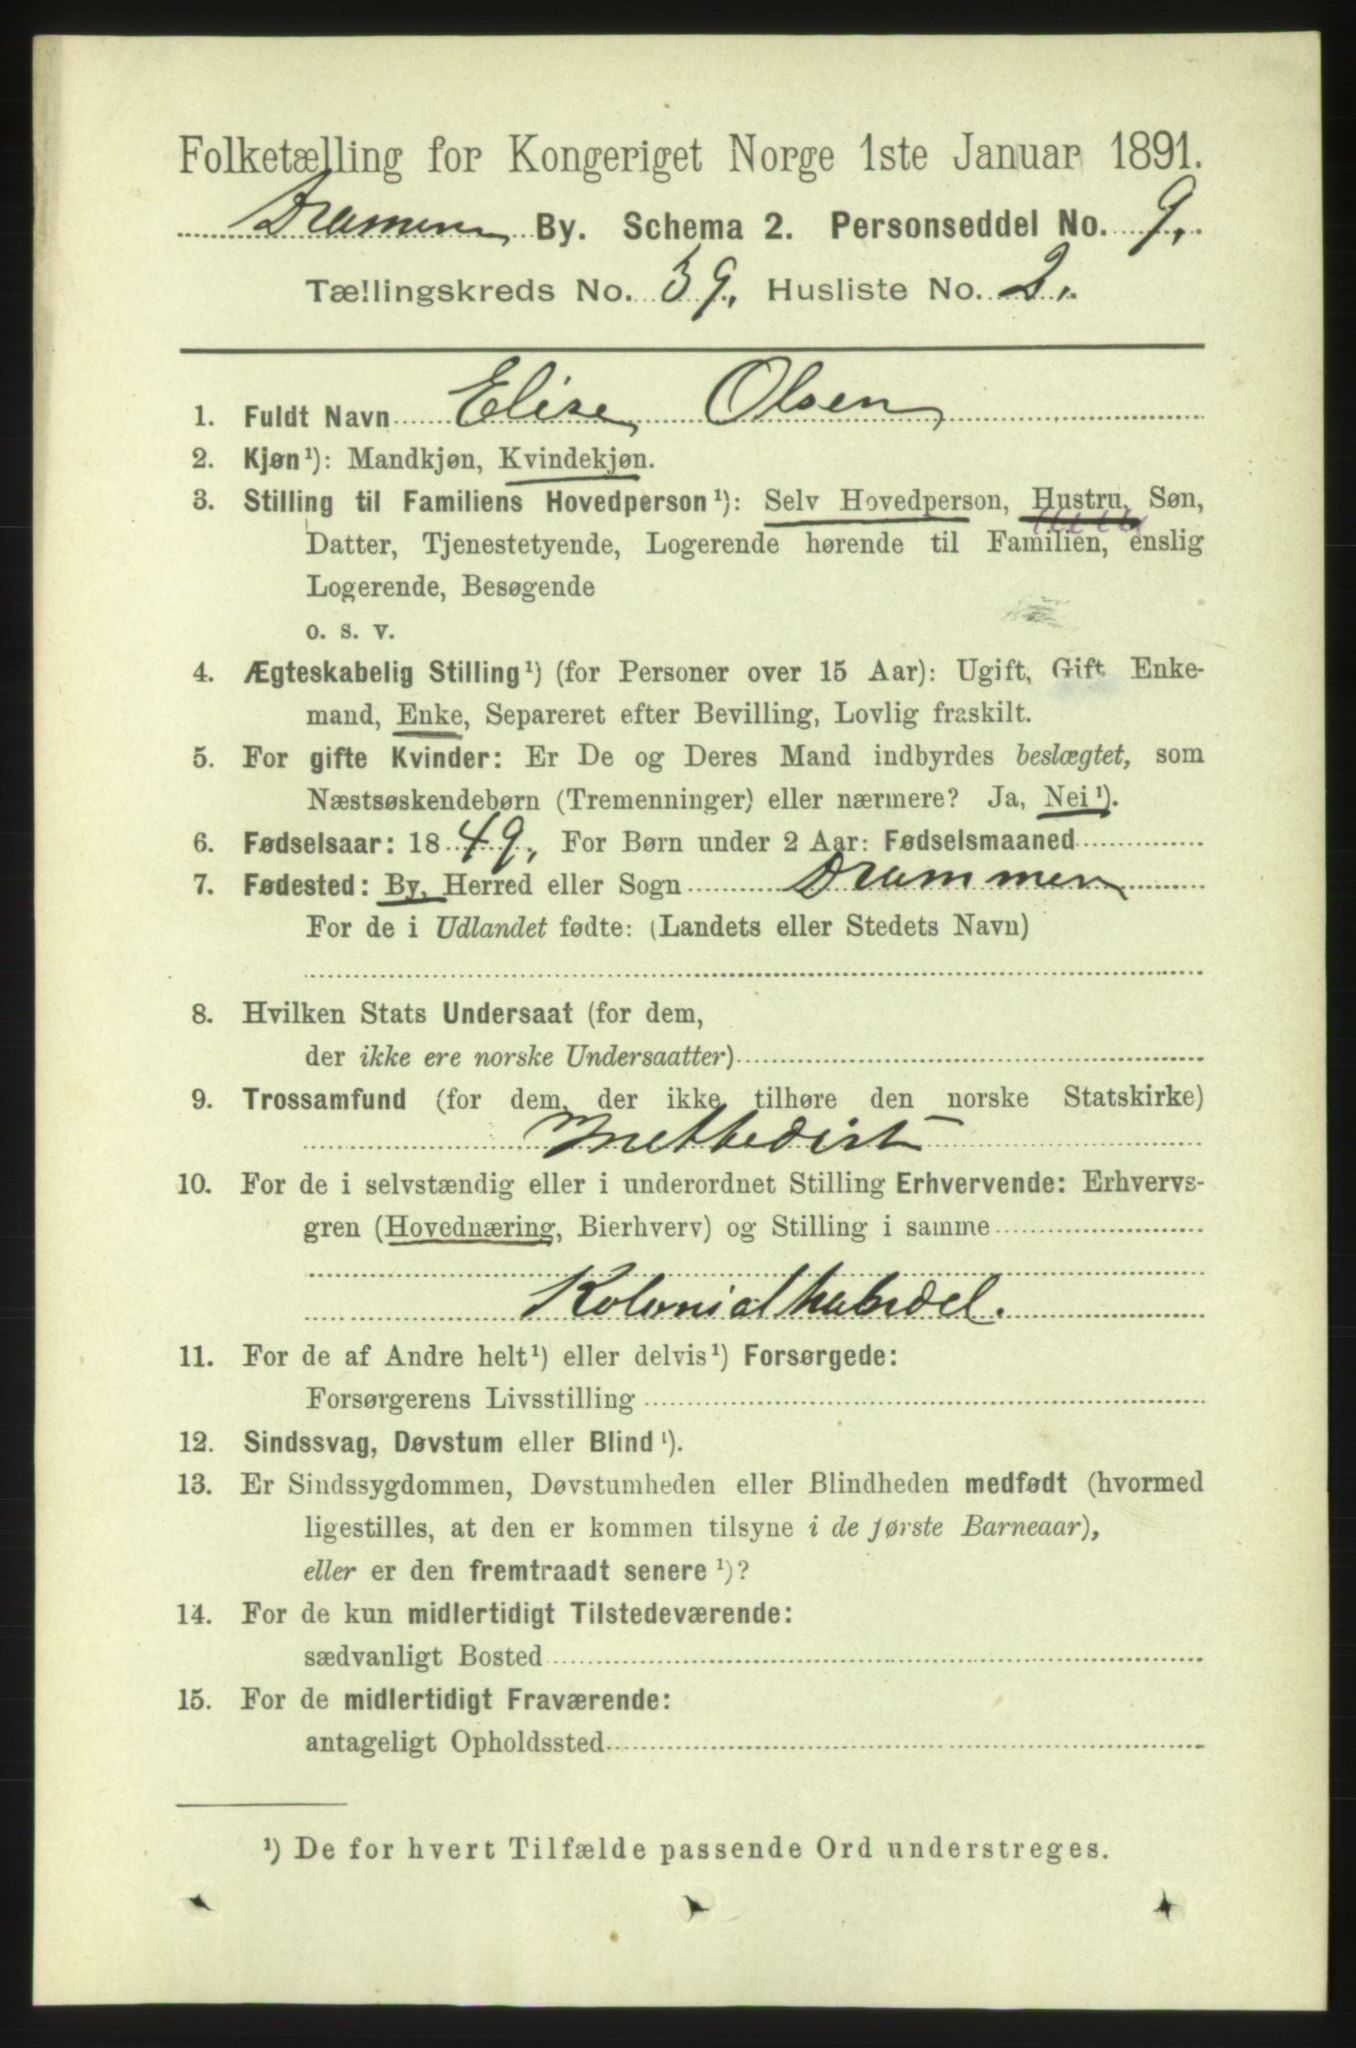 Folketælling for Kongeriget Norge 1ste Januar 1891.
Dramen By. Schema 2. Personseddel No. 9.
Tællingskreds No. 39. Husliste No. 2.
1. Fuldt Navn Elise Olsen
2. Kjøn¹): Mandkjøn, Kvindekjøn.
3. Stilling til Familiens Hovedperson¹): Selv Hovedperson, Hustru, Søn,
Datter, Tjenestetyende, Logerende hørende til Familien, enslig
Logerende, Besøgende
o. s. v.
4. Ægteskabelig Stilling¹) (for Personer over 15 Aar): Ugift, Gift Enke-
mand, Enke, Separeret efter Bevilling, Lovlig fraskilt.
5. For gifte Kvinder: Er De og Deres Mand indbyrdes beslægtet, som
Næstsøskendebørn (Tremenninger) eller nærmere? Ja, Nei¹).
6. Fødselsaar: 1849. For Børn under 2 Aar: Fødselsmaaned
7. Fødested: By, Herred eller Sogn Drammen
For de i Udlandet fødte: (Landets eller Stedets Navn)
8. Hvilken Stats Undersaat (for dem,
der ikke ere norske Undersaatter)
9. Trossamfund (for dem, der ikke tilhøre den norske Statskirke)
Methedist
10. For de i selvstændig eller i underordnet Stilling Erhvervende: Erhvervs-
gren (Hovednæring, Bierhverv) og Stilling i samme
Kolonialhandel.
11. For de af Andre helt¹) eller delvis¹) Forsørgede:
Forsørgerens Livsstilling
12. Sindssvag, Døvstum eller Blind¹).
13. Er Sindssygdommen, Døvstumheden eller Blindheden medfødt (hvormed
ligestilles, at den er kommen tilsyne i de første Barneaar),
eller er den fremtraadt senere¹)?
14. For de kun midlertidigt Tilstedeværende:
sædvanligt Bosted
15. For de midlertidigt Fraværende:
antageligt Opholdssted
¹) De for hvert Tilfælde passende Ord understreges.